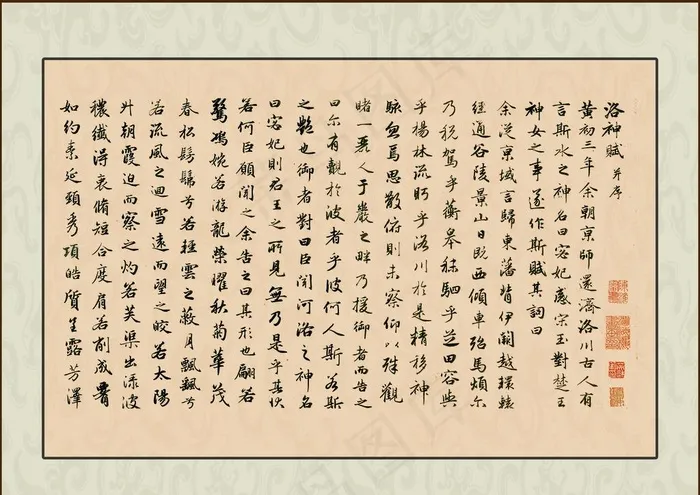 洛神賦 并序
黃初三年余朝京師還濟洛川古人有
言斯水之神名曰宓妃感宋玉對楚王
神女之事遂作斯賦其詞曰
余從京域言歸東藩背伊闕越轘轅
經通谷陵景山日既西傾車殆馬煩尓
乃稅駕乎蘅皋秣駟乎芝田容與
乎楊林流眄乎洛川於是精移神
駭忽焉思散俯則未察仰以殊觀
睹一麗人于巖之畔乃援御者而告之
曰尓有覿於彼者乎彼何人斯若斯
之艷也御者對曰臣聞河洛之神名
曰宓妃則君王之所見無乃是乎其狀
若何臣願聞之余告之曰其形也翩若
驚鴻婉若游龍榮曜秋菊華茂
春松髣髴兮若輕雲之蔽月飄飄兮
若流風之迴雪遠而望之皎若太陽
升朝霞迫而察之灼若芙渠出淥波
穠纖得衷脩短合度肩若削成腰
如約素延頸秀項皓質呈露芳澤